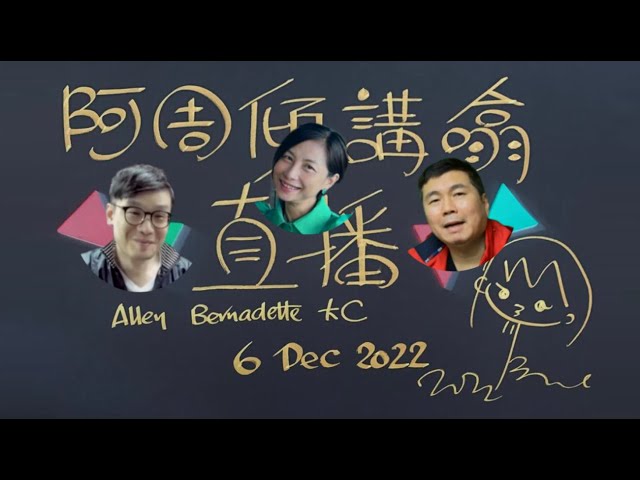 阿周傾講翕
直播
Alley Bernadette KC
6 Dec 2022